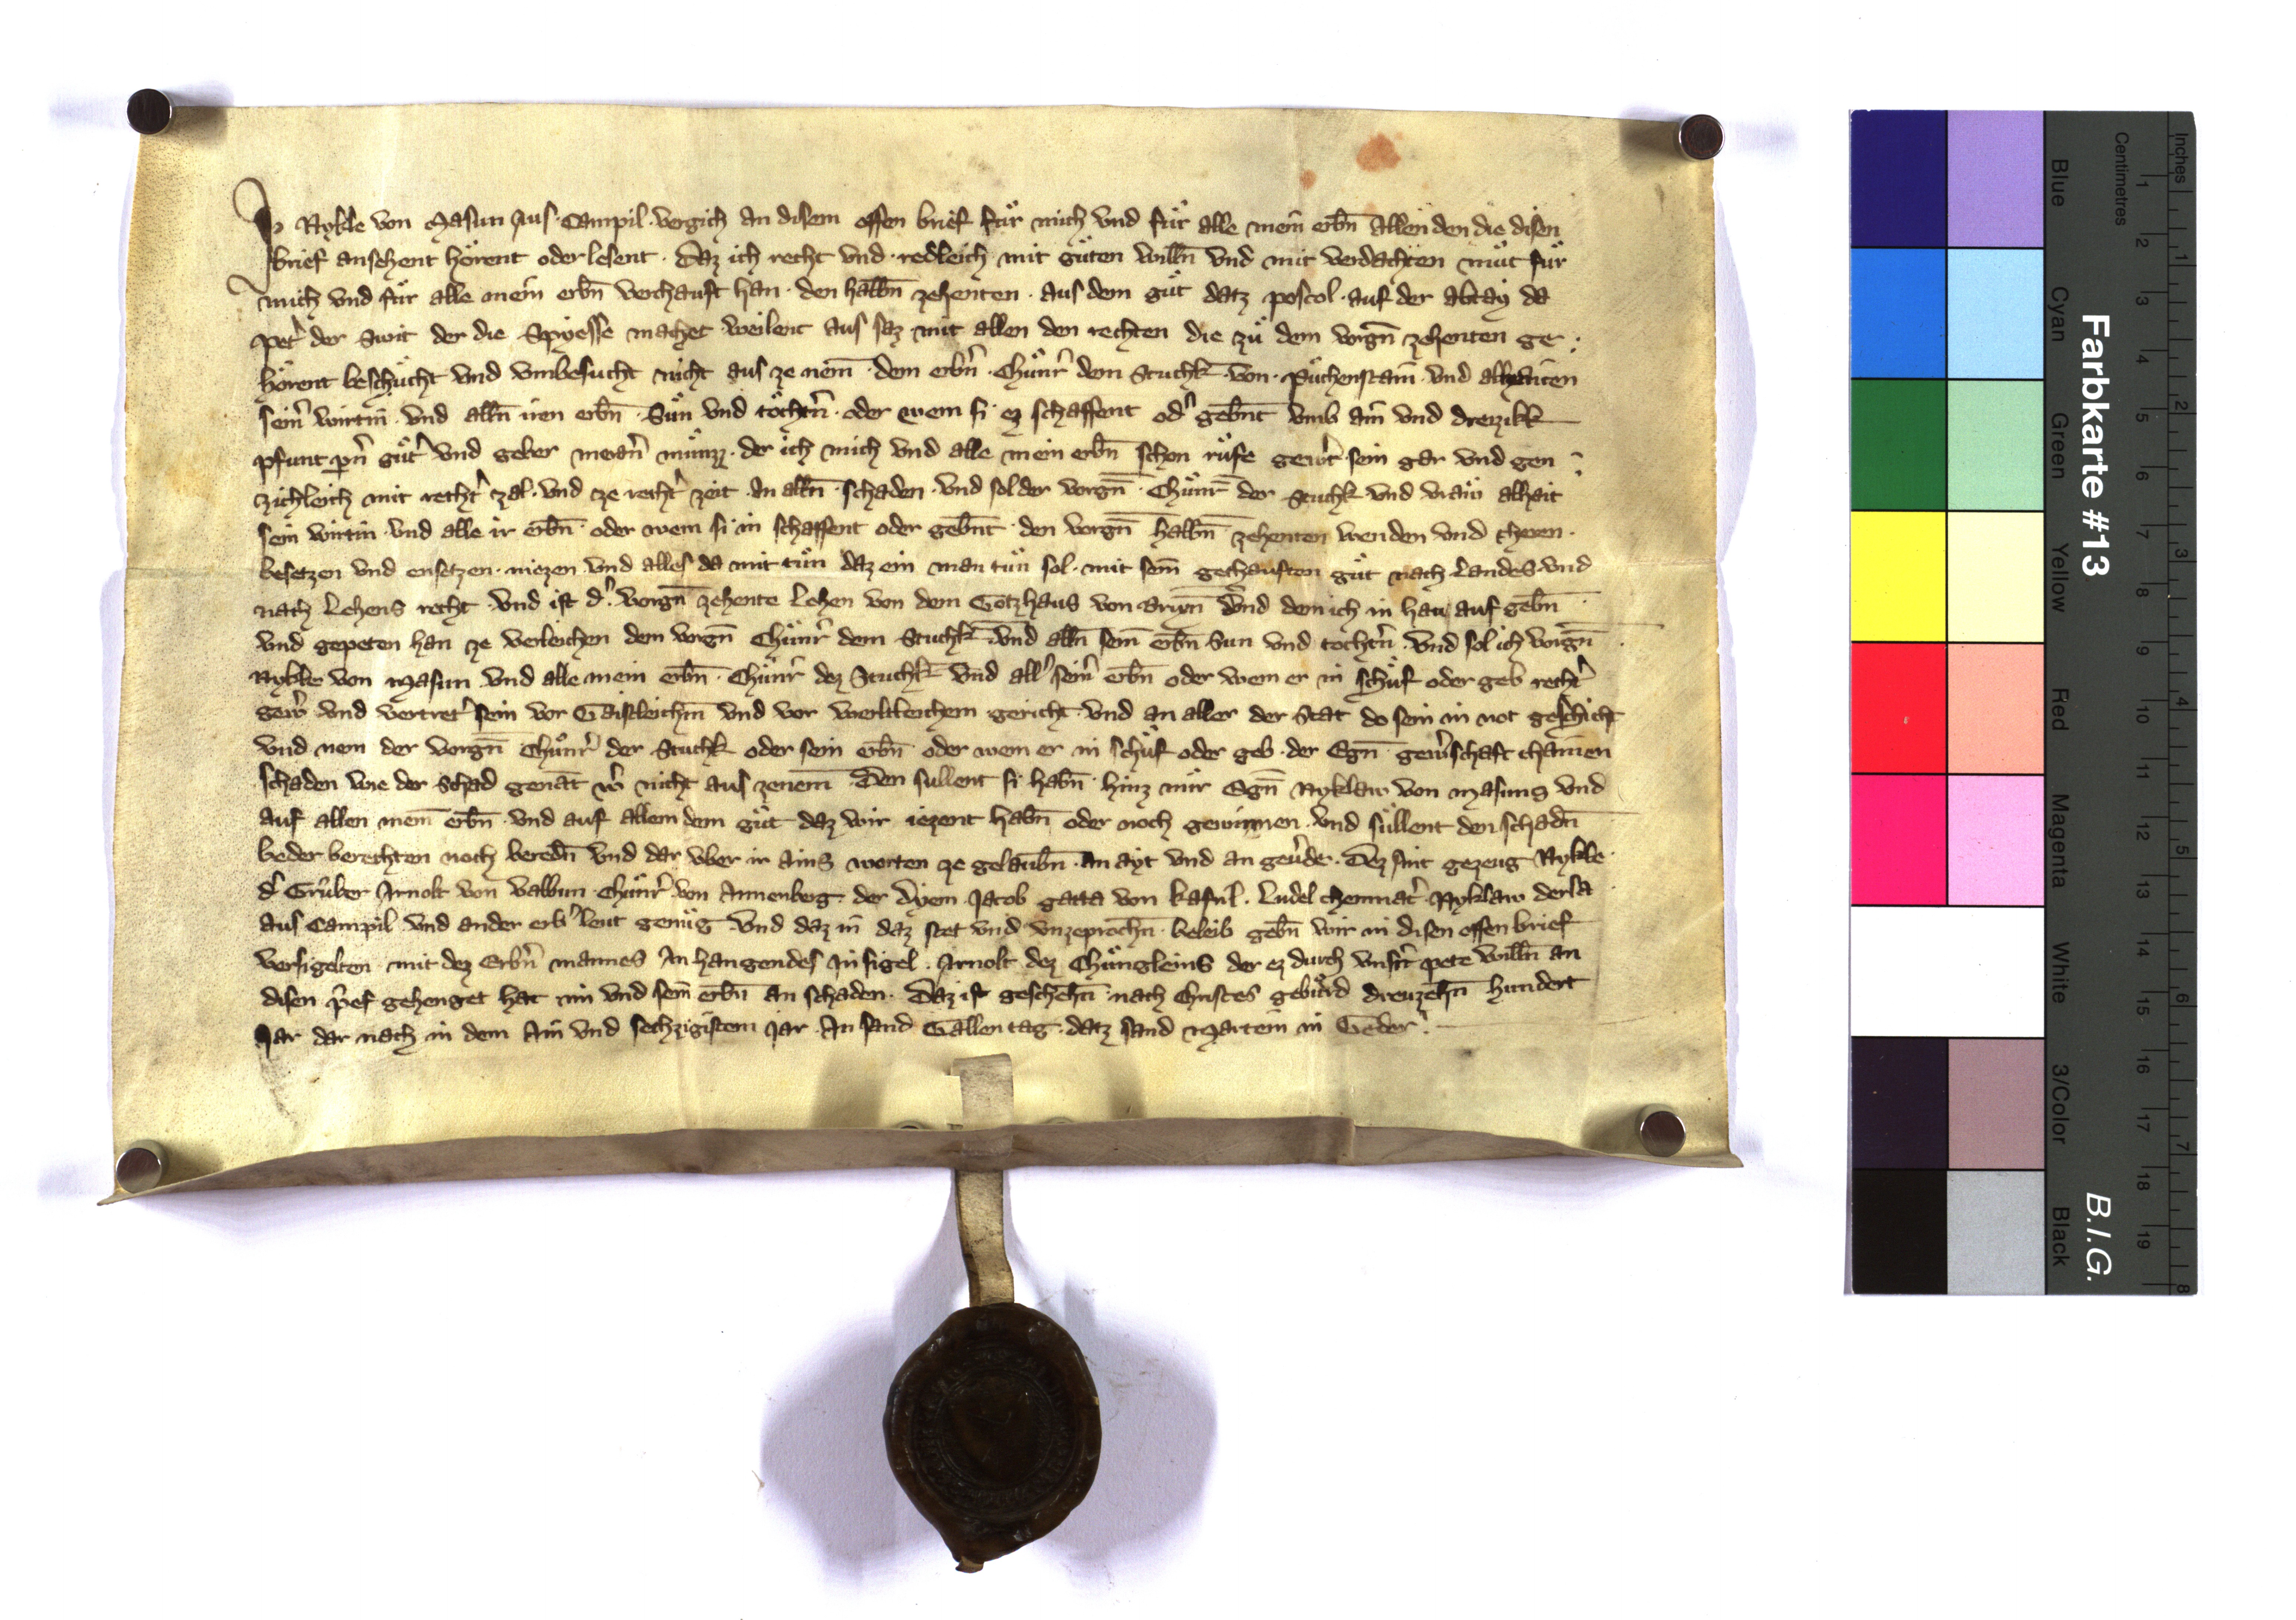 Ich Nykle von Masun aus Campil vergich an disem offen brief für mich vnd für alle mein erbn̄ allen den die disen
brief ansehent hörent oder lesent. Daz ich recht vnd redleich mit gůten willn̄ vnd mit verdachten můt für
mich vnd für alle mein erbn̄ verchauft han. den halbn̄ zehenten. aus dem gůt datz poscol auf der abtay da
Pet̓ der Swit der die Spiesse machet weilent aus saz mit allen den rechten die zů dem vorgn̄ zehenten ge:
hörent beschücht vnd vmbesucht nicht aus ze nem̄. dem erbn̓ Chůnr̓ dem Stuchk̄ von Půchenstain vnd alhaiten
sein̓ wirtin vnd alln̄ iren erbn̄ Sün vnd töchtn̓. oder wem si ez schaffent od̓ gebn̄t vmb ain vnd dreizikk
pfunt pn̓ gůt̓ vnd geber meran̓ münzz. der ich mich vnd alle mein erbn̄ schon rüfe gewert sein gar vnd gen:
zichleich mit recht̓ zal. vnd ze recht̓ zeit An alln̄ schaden. vnd sol der vorgn̄ Chůnr̄ der Stuchk vnd vraw alhait
sein wirtin vnd alle ir erbn̄ oder wem si in schaffent oder gebn̄t den vorgn̄ halbn̄ zehenten wenden vnd cheren.
besetzen vnd ensetzen. niezen vnd alles da mit tůn daz ein man tůn sol. mit sem̄ gechauften gůt nach Landes vnd
nach Lehens recht. vnd ist d̓ vorgn̄ zehente Lehen von dem Gotzhaus von Brixn̄ vnd dem ich in han auf gebn̄
vnd gepeten han ze verleichen dem vorgn̄ Chůnr̓ dem Stuchk̄ vnd alln̄ sem̄ erbn̄ Sun vnd tochtn̓. vnd sol ich vorgn̄
Nykle von Masun vnd alle mein erbn̄. Chůnr̓ dez Stuchk̄ vnd all̓ sein̓ erbn̄ oder wem er in schůf oder geb recht̓
gew̓ vnd vertret̓ sein vor Gaistleichm̄ vnd vor werltleichem gericht. vnd an aller der Stat do sein in not geschicht
vnd nem der vorgn̄ Chůnr̓ der Stuchk oder sein erbn̄ oder wem er in schůf oder geb. der Egn̄ gew̓schaft chainen
schaden wie der Schad genāt w̓ nicht aus zenem̄ Den sullent si habn̄ hinz mir Egn̄ Nyklaw von Masuns vnd
auf allen mem̄ erbn̄ vnd auf allem dem gůt daz wir iezent habn̄ oder noch gewinnen. vnd sullent den schadn̄
weder berechten noch beredn̄ vnd dar vber ir ains worten ze gelaubn̄. an ayt vnd an gev̓de. Dez sint gezeug Nykle
d̓ Grůber Arnolt von valbun Chůnr̓ von Annenberg. der Dyem Jacob gatta von kasnl. Ludel chemnat̓ Nyklaw dersa
aus Campil vnd ander erb̓ leut genůg. vnd daz in daz stet vnd vnzeprochn̄. beleib gebn̄ wir in disen offen brief
versigelten mit dez Erbn̓ mannes An hangendes Insigel. Arnolt dez Chůngleins der ez durch vnsr̓ pete willn̄ an
disen p̓ef gehenget hat im vnd sem̄ erbn̄ an schaden. Daz ist geschehn̄ nach Christes gebůrd dreuzehn̄ hundert
Jar dar nach in dem Ain vnd sechzigistem Jar. An sand Gallen tag. datz sand Martein in Geder.
Farbkarte #13
B.I.G.
Inches
Centimetres
Blue
Cyan
Green
Yellow
Red
Magenta
White
3/Color
Black
1 2 3 4 5 6 7 8 9 10 11 12 13 14 15 16 17 18 19
1 2 3 4 5 6 7 8